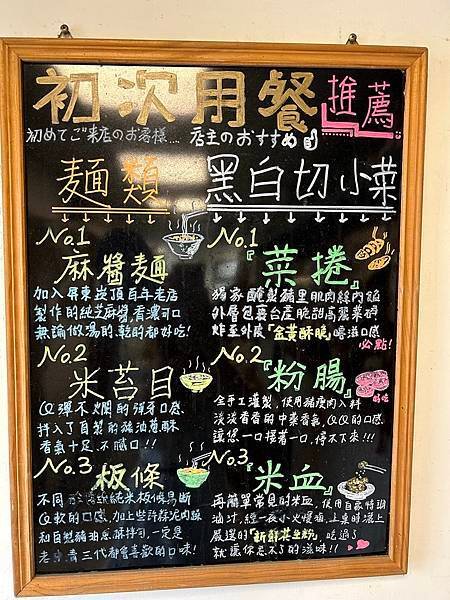 初次用餐 推薦
初めてご来店のお客様... 店主のおすすめ
麵類
No.1
麻醬麵
加入屏東崁頂百年老店
製作的純芝麻醬香濃可口
無論做湯的、乾的都好吃!
No.2
米苔目
QQ彈不爛的彈牙口感
拌入了自製的豬油蔥酥
香氣十足、不膩口!!
No.3
板條
不同 純米板條易斷
Q軟的口感,加上些許蒜泥肉燥
和自熬豬油 蔴拌勻,一定是
老中青三代都會喜歡的口味!
黑白切小菜
No.1
『菜捲』
獨家醃製豬里肌肉絲內餡
外層包裹台產脆甜高麗菜
炸至外皮『金黃酥脆』 口感
必點!
No.2
『粉腸』
全手工灌製,使用豬瘦肉入料
淡淡香香的中藥香氣,QQ的口感
讓您一口接著一口,停不下來!!!
No.3
『米血』
再簡單常見的米血,使用自家特調
滷汁,經一夜小火慢滷,上桌時灑上
嚴選的『新鮮花生粉』,吃過了
就讓你忘不了的滋味!!